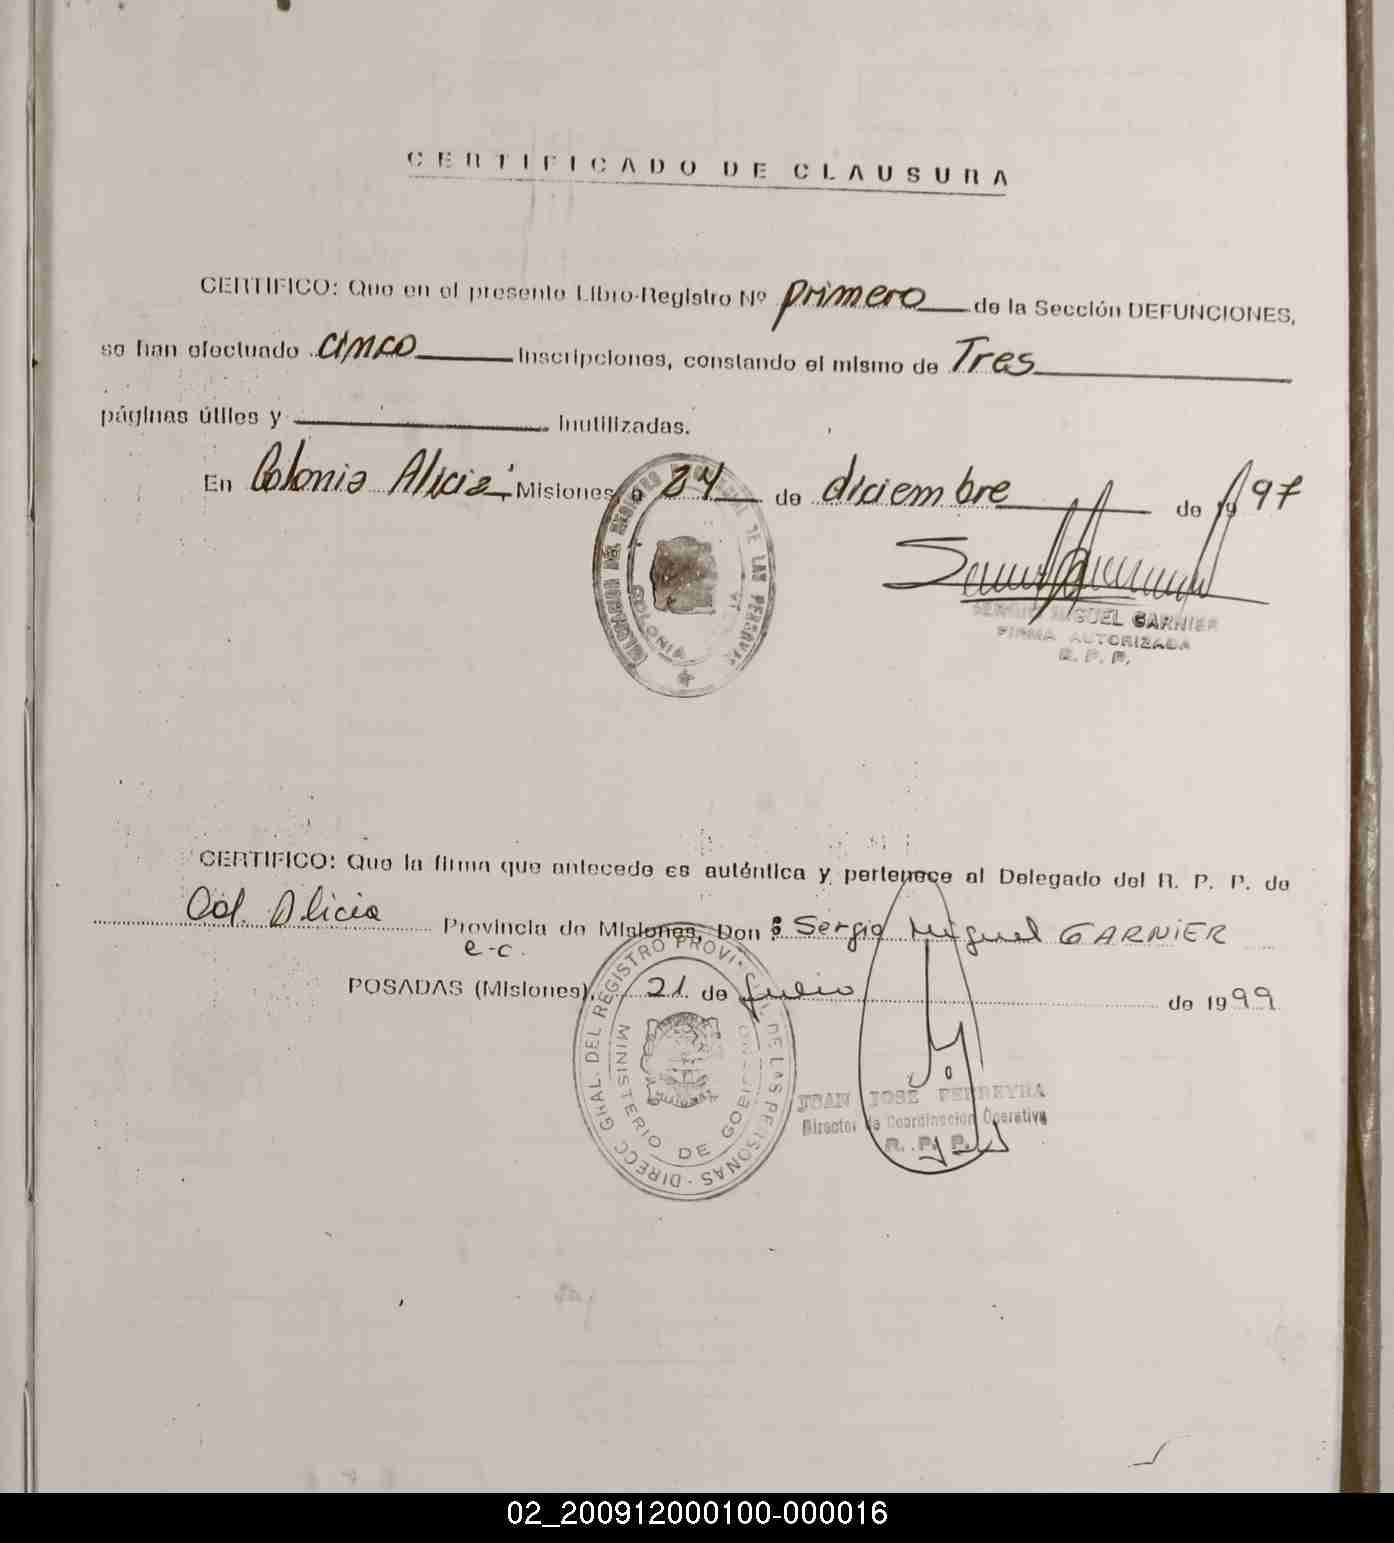 CERTIFICADO DE CLAUSURA
CERTIFICO: Que en el presente Libro-Registro Nº primero de la Sección DEFUNCIONES,
se han efectuado cinco Inscripciones, constando el mismo de Tres
páginas útiles y Inutilizadas.
En Colonia Alicia, Misiones, a 24 de diciembre de 1997
COLONIA
SERGIO MIGUEL GARNIER
FIRMA AUTORIZADA
R. P. P.
CERTIFICO: Que la firma que antecede es auténtica y pertenece al Delegado del R. P. P. de
Col. Alicia Provincia de Misiones, Don: Sergio Miguel GARNIER
e-c.
POSADAS (Misiones), 21 de Julio de 1999
DIRECC GRAL. DEL REGISTRO PROVINCIAL DE LAS PERSONAS
MINISTERIO DE GOBIERNO
JUAN JOSE FERREYRA
Director de Coordinación Operativa
R. P. P.
02_200912000100-000016